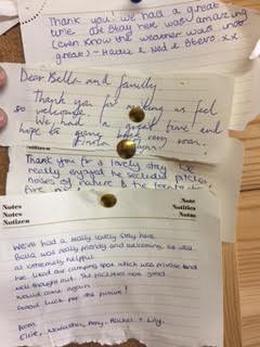 Thank you! we had a great
time. the stay here was amazing
(even know the weather was not
great) - Hattie & Ned & Steve. xx
Dear Bella and family
Thank you for making us feel
so welcome.
We had a great time and
hope to come back very soon.
Thank you for a lovely stay. We
really enjoyed the secluded pitches,
noises of nature & the
Notes
Notes
Notizen
Note
Notities
Notas
We've had a really lovely stay here.
Bella was really friendly and welcoming as well
as extremely helpful.
We liked our camping spot which was private and
well thought out. The facilities were good.
Would come again.
Good luck for the future!
From
Ellie, Amy, Rachel & Lily.